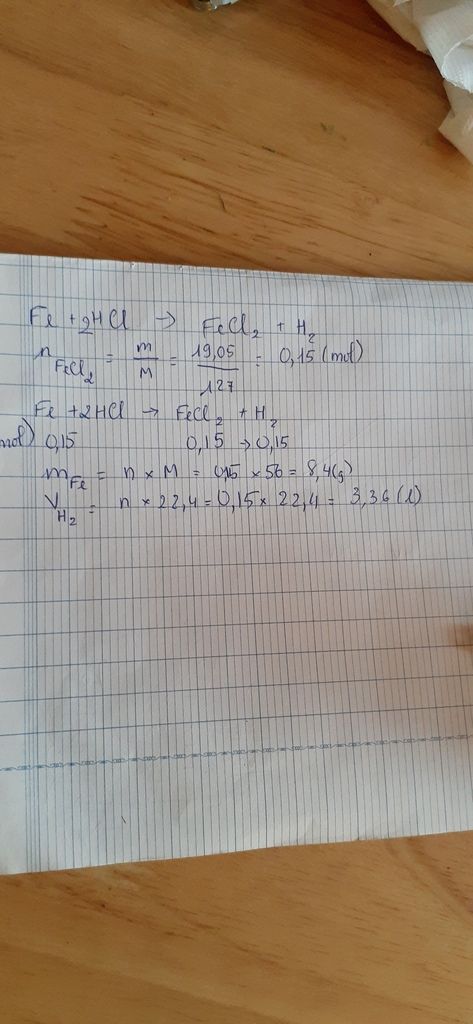 Fe + 2HCl → FeCl₂ + H₂
n FeCl₂ = m/M = 19,05/127 = 0,15 (mol)
Fe + 2HCl → FeCl₂ + H₂
mol) 0,15 0,15 → 0,15
m Fe = n × M = 0,15 × 56 = 8,4 (g)
V H₂ = n × 22,4 = 0,15 × 22,4 = 3,36 (l)